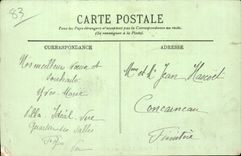 83
CARTE POSTALE
Tous les Pays étrangers n'acceptent pas la Correspondance au recto.
(Se renseigner à la Poste).
CORRESPONDANCE
ADRESSE
Nos meilleurs vœux et
souhaits
Yves-Marie
Villa Idéal Vue
Mme et Mr Jean
Concarneau
Finistère